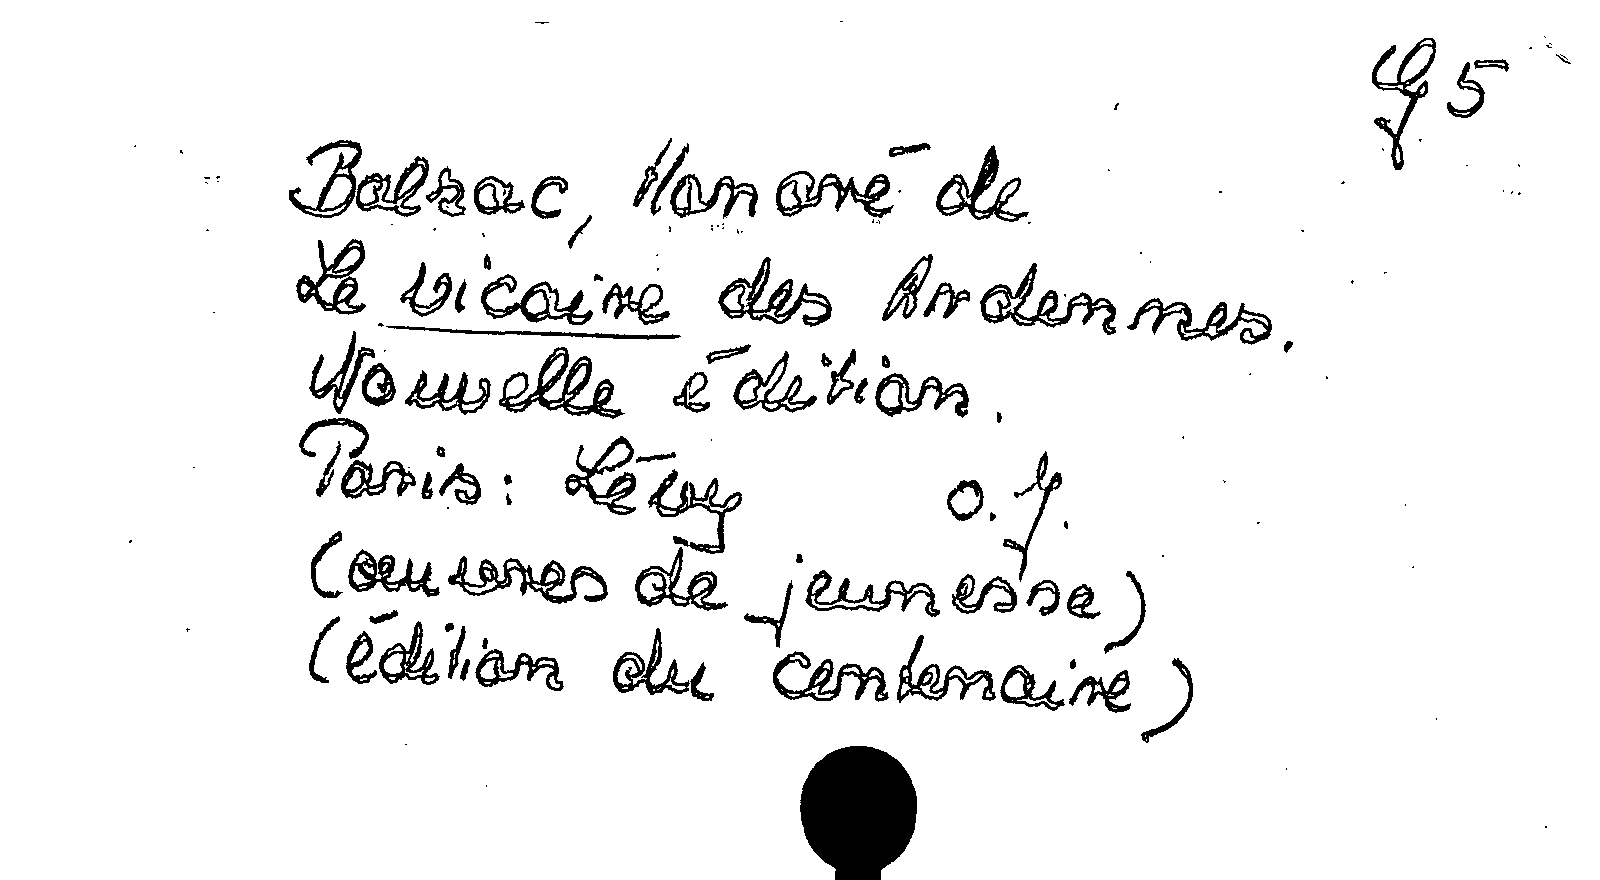 Balzac, Honoré de
Le vicaire des Ardennes.
Nouvelle édition.
Paris: Lévy o. J.
(oeuvres de jeunesse)
(édition du centenaire)